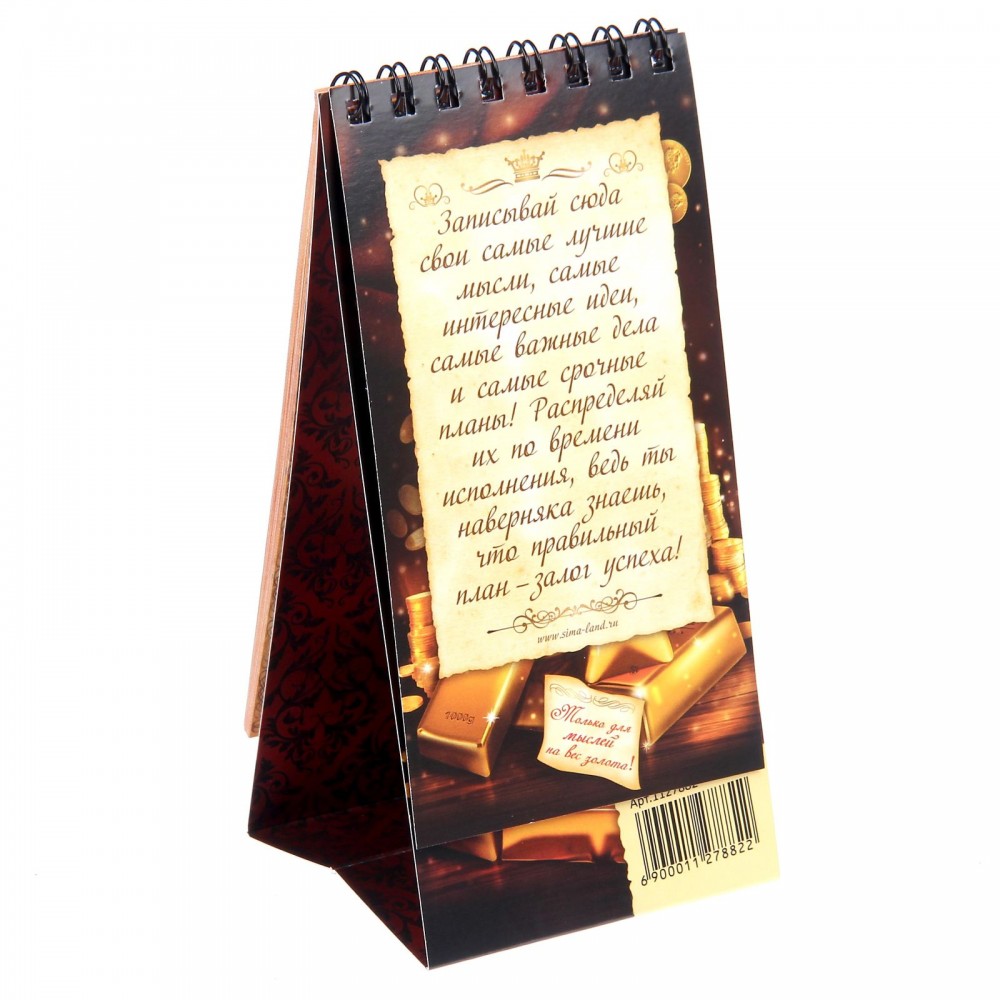 Записывай сюда
свои самые лучшие
мысли, самые
интересные идеи,
самые важные дела
и самые срочные
планы! Распределяй
их по времени
исполнения, ведь ты
наверняка знаешь,
что правильный
план – залог успеха!
www.sima-land.ru
1000g
Только для
мыслей
на вес золота!
6 900011 278822